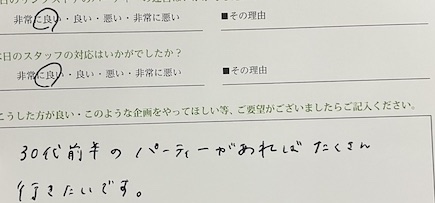 非常に良い・良い・悪い・非常に悪い ■その理由
日のスタッフの対応はいかがでしたか？
非常に良い・良い・悪い・非常に悪い ■その理由
こうした方が良い・このような企画をやってほしい等、ご要望がございましたらご記入ください。
30代前半のパーティーがあればたくさん
行きたいです。